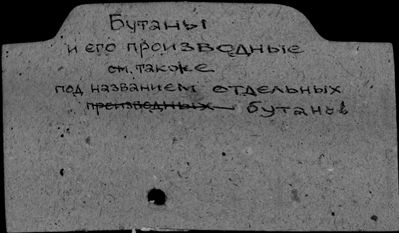 Бутаны
и его производные
см. также
под названием отдельных
производных бутанов